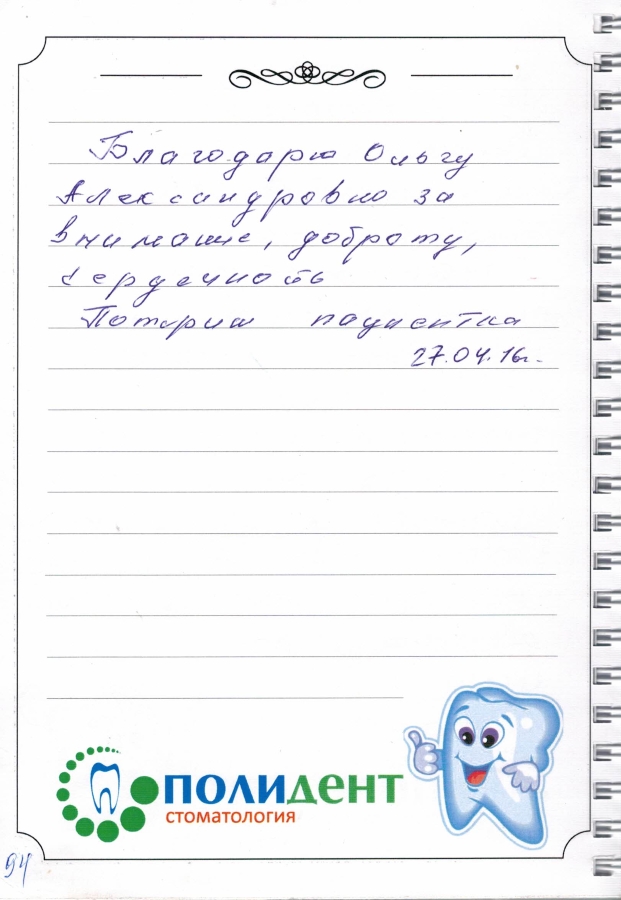 Благодарю Ольгу
Александровну за
внимание, доброту,
сердечность
пациентка
27.04.16г.
ПОЛИДЕНТ
СТОМАТОЛОГИЯ
94